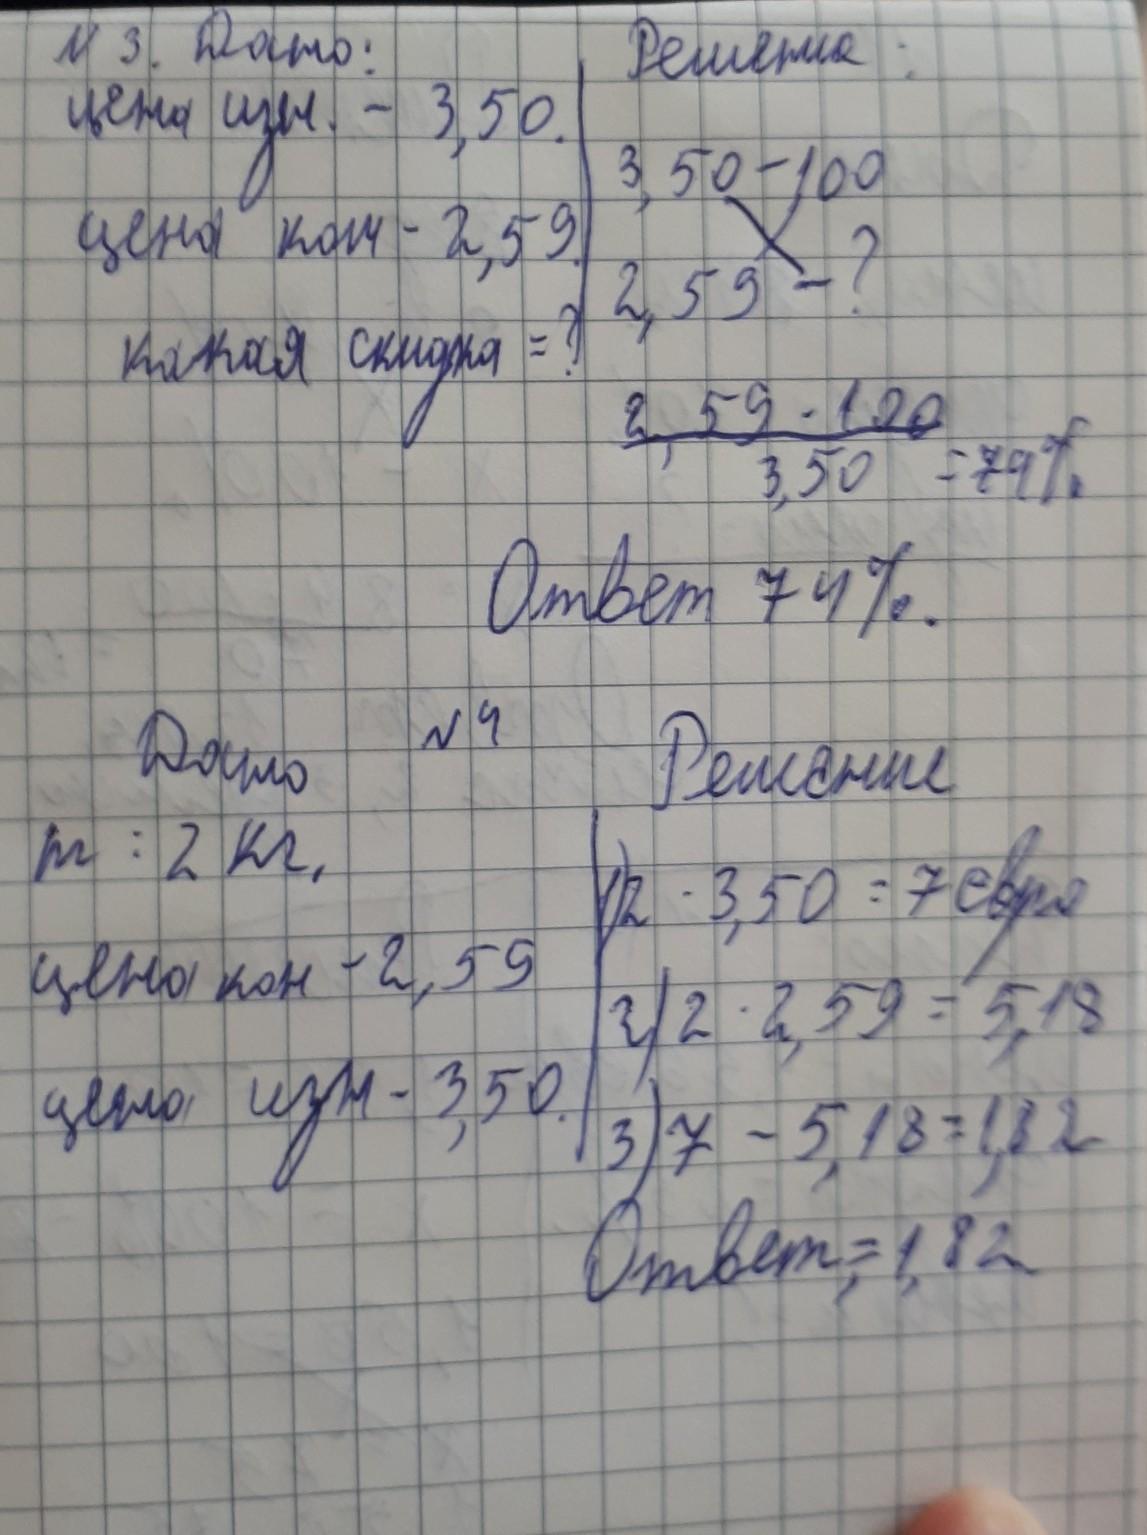 N 3. Дано:
Решение:
цена изн. - 3,50.
3,50 - 100
цена кон - 2,59.
2,59 - ?
какая скидка = ?
2,59 · 100
3,50 = 74%.
Ответ 74%.
N4
Дано
Решение
m : 2 кг.
1) 2 · 3,50 = 7 евро
цена кон - 2,59
2) 2 · 2,59 = 5,18
цена изн - 3,50.
3) 7 - 5,18 = 1,82
Ответ = 1,82